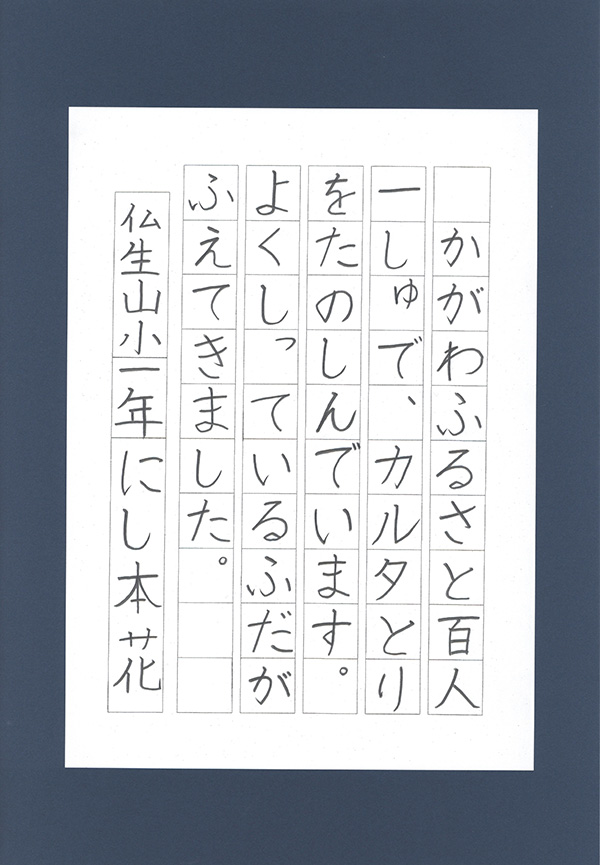 かがわふるさと百人
一しゅで、カルタとり
をたのしんでいます。
よくしっているふだが
ふえてきました。
仏生山小一年にし本花